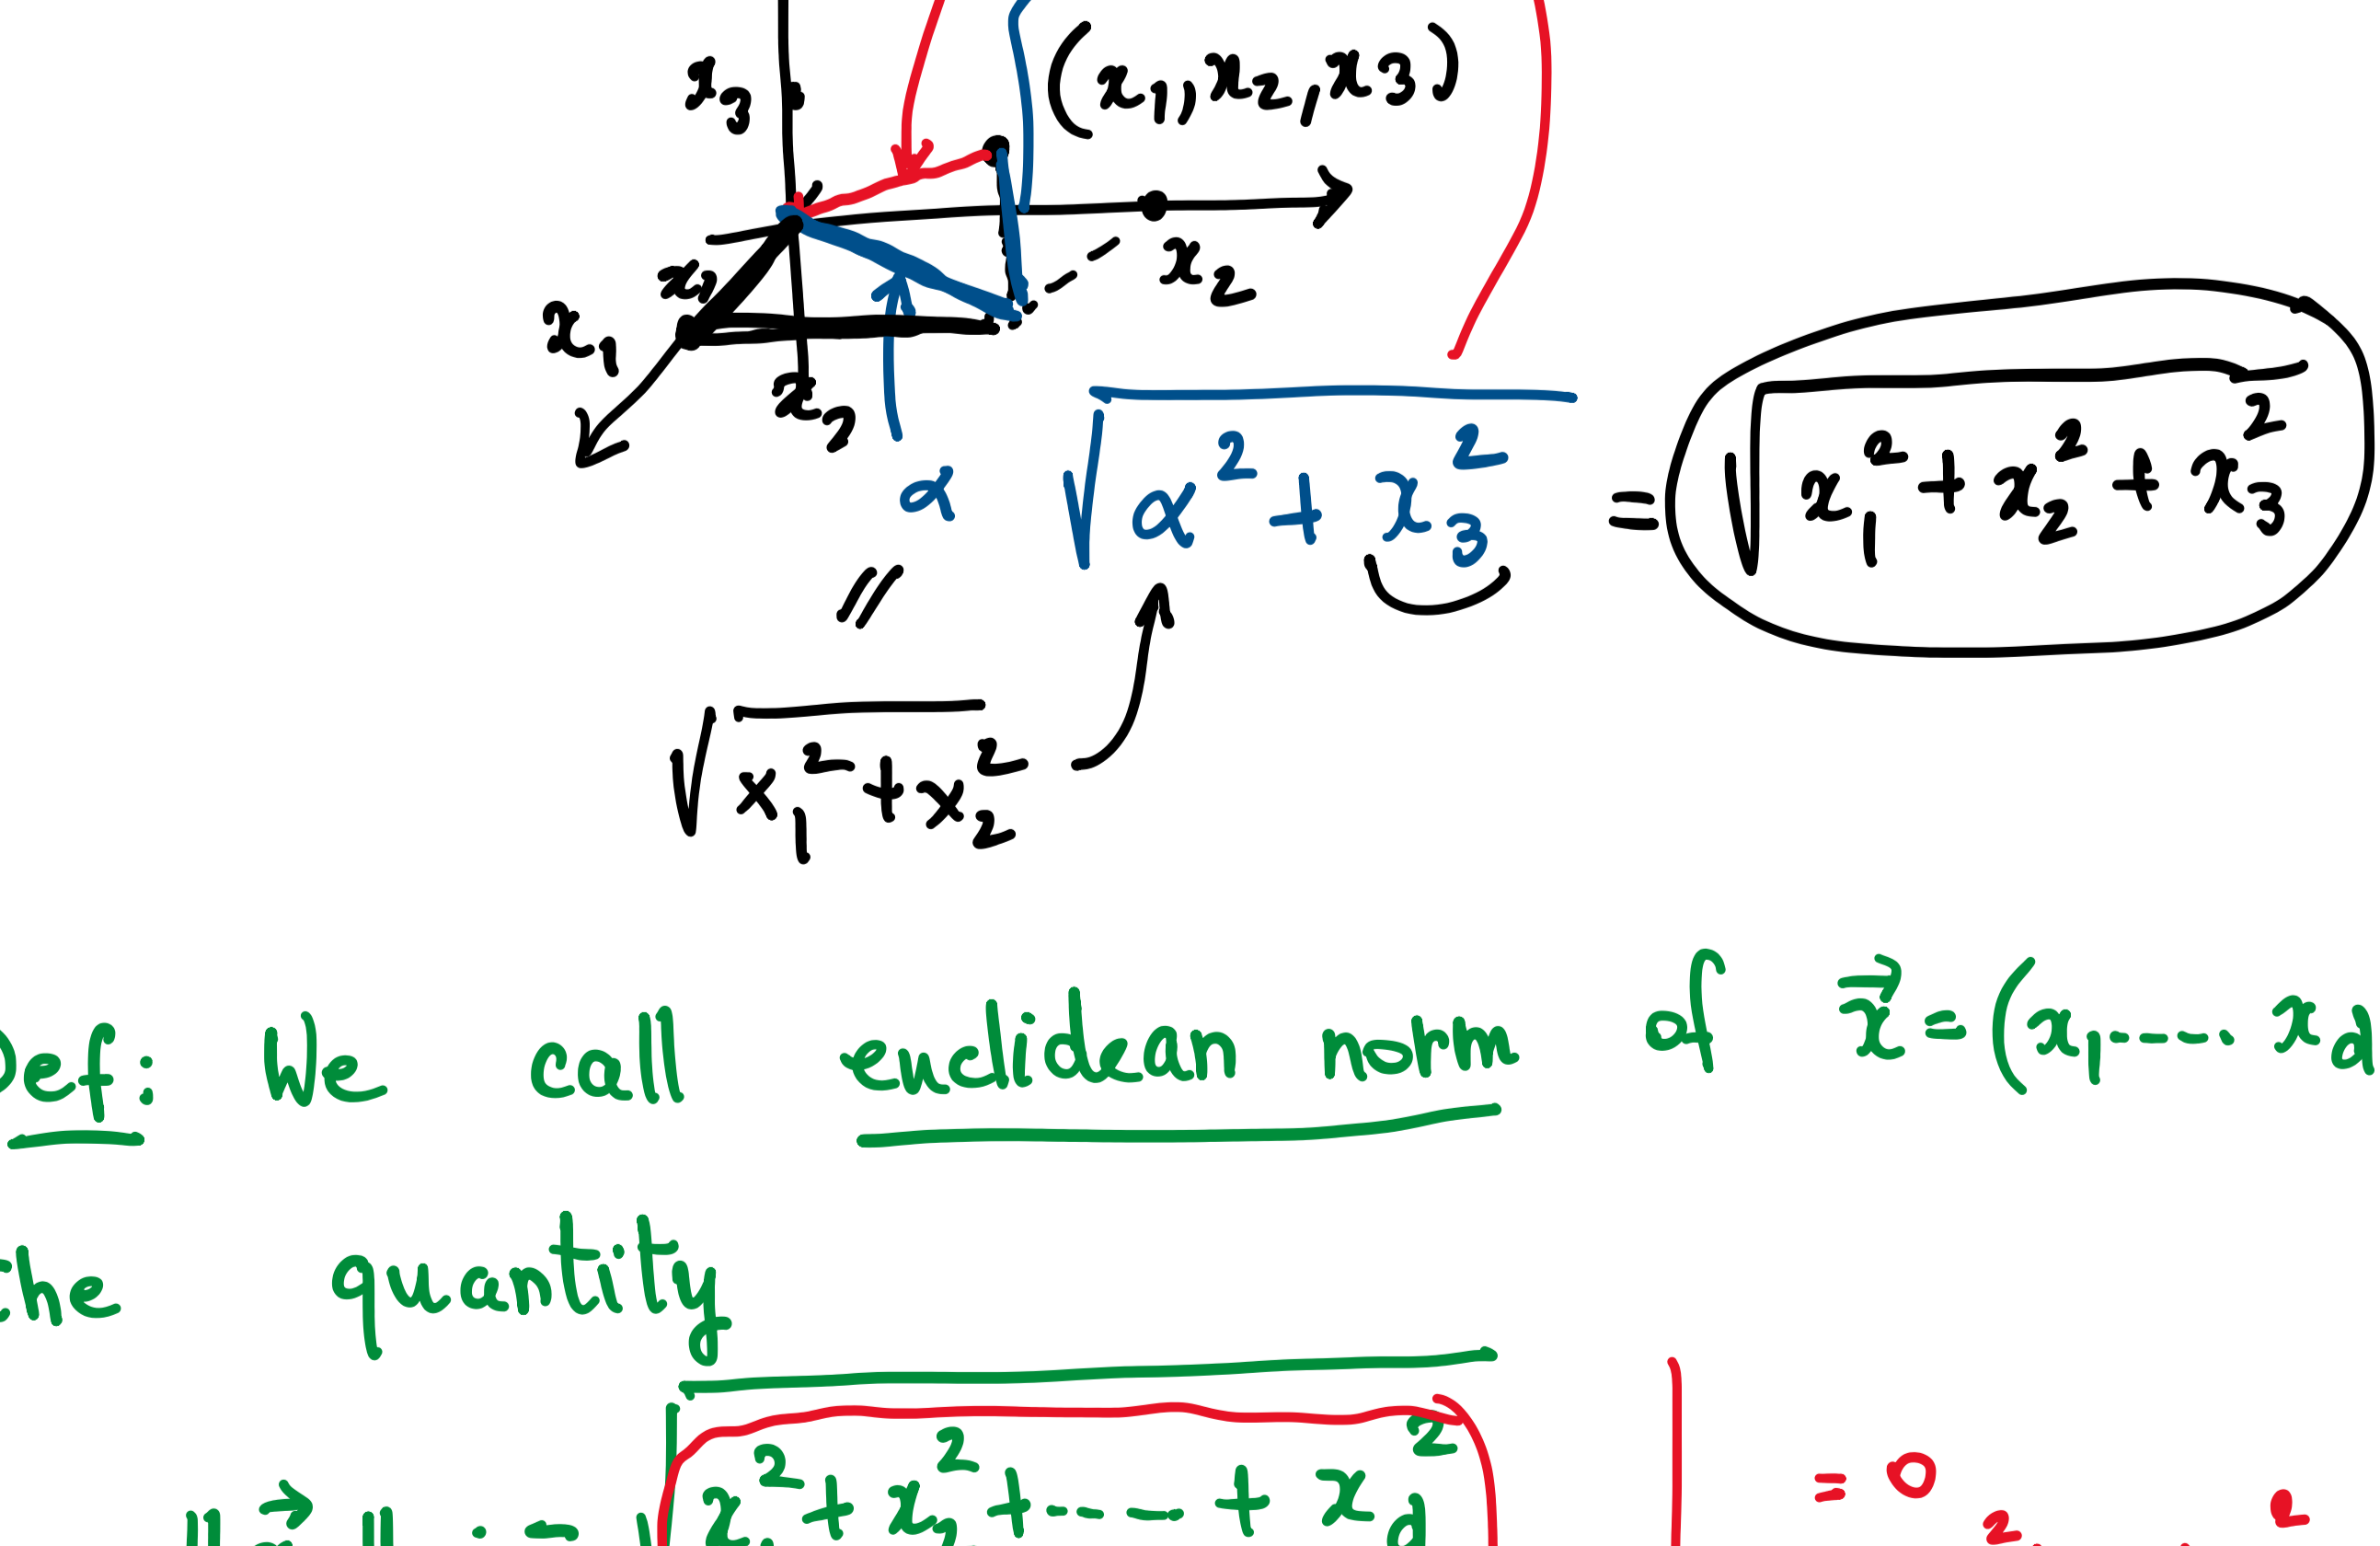 x₃
(x₁, x₂, x₃)
x₂
x₁
x₁
x₂
a
√(a² + x₃²) = √(x₁² + x₂² + x₃²)
//
√(x₁² + x₂²)
ef: We call euclidean norm of x⃗ = (x₁, ... x_d
he quantity
:= √(x₁² + x₂² + ... + x_d²
= 0
2 2